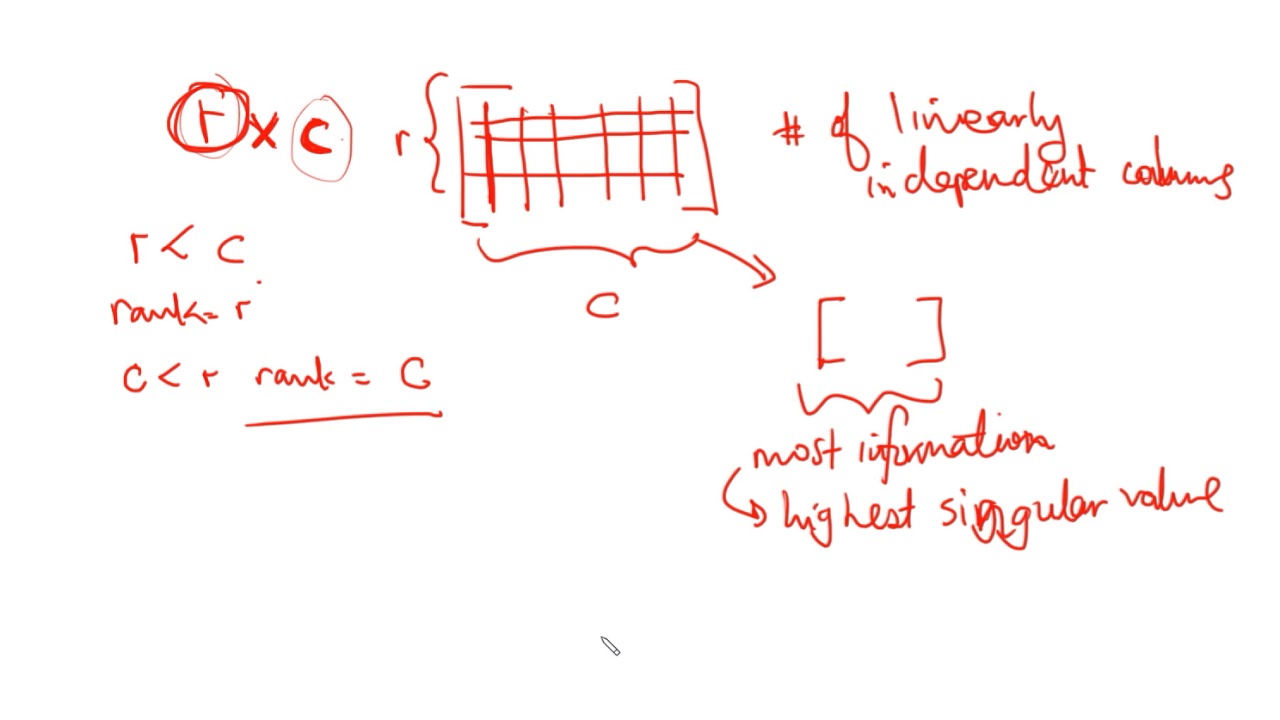 r x c
r
# of linearly
independent columns
r < c
rank = r
c
c < r rank = c
most information
highest singular value